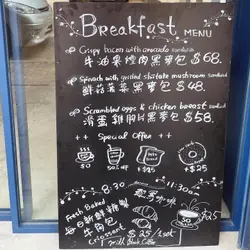 Breakfast MENU
Crispy bacon with avocado sandwich
牛油果煙肉黑麥包 $68.
Spinach with grilled shiitake mushroom sandwich
鮮菇菠菜黑麥包 $48.
Scrambled eggs & chicken breast sandwich
滑蛋雞胸片黑麥包 $58.
++ Special Offer ++
50% OFF
+$25
8:30
11:30am
Fresh Baked
每日新鮮
牛角包
Croissant $25/set
with Black Coffee